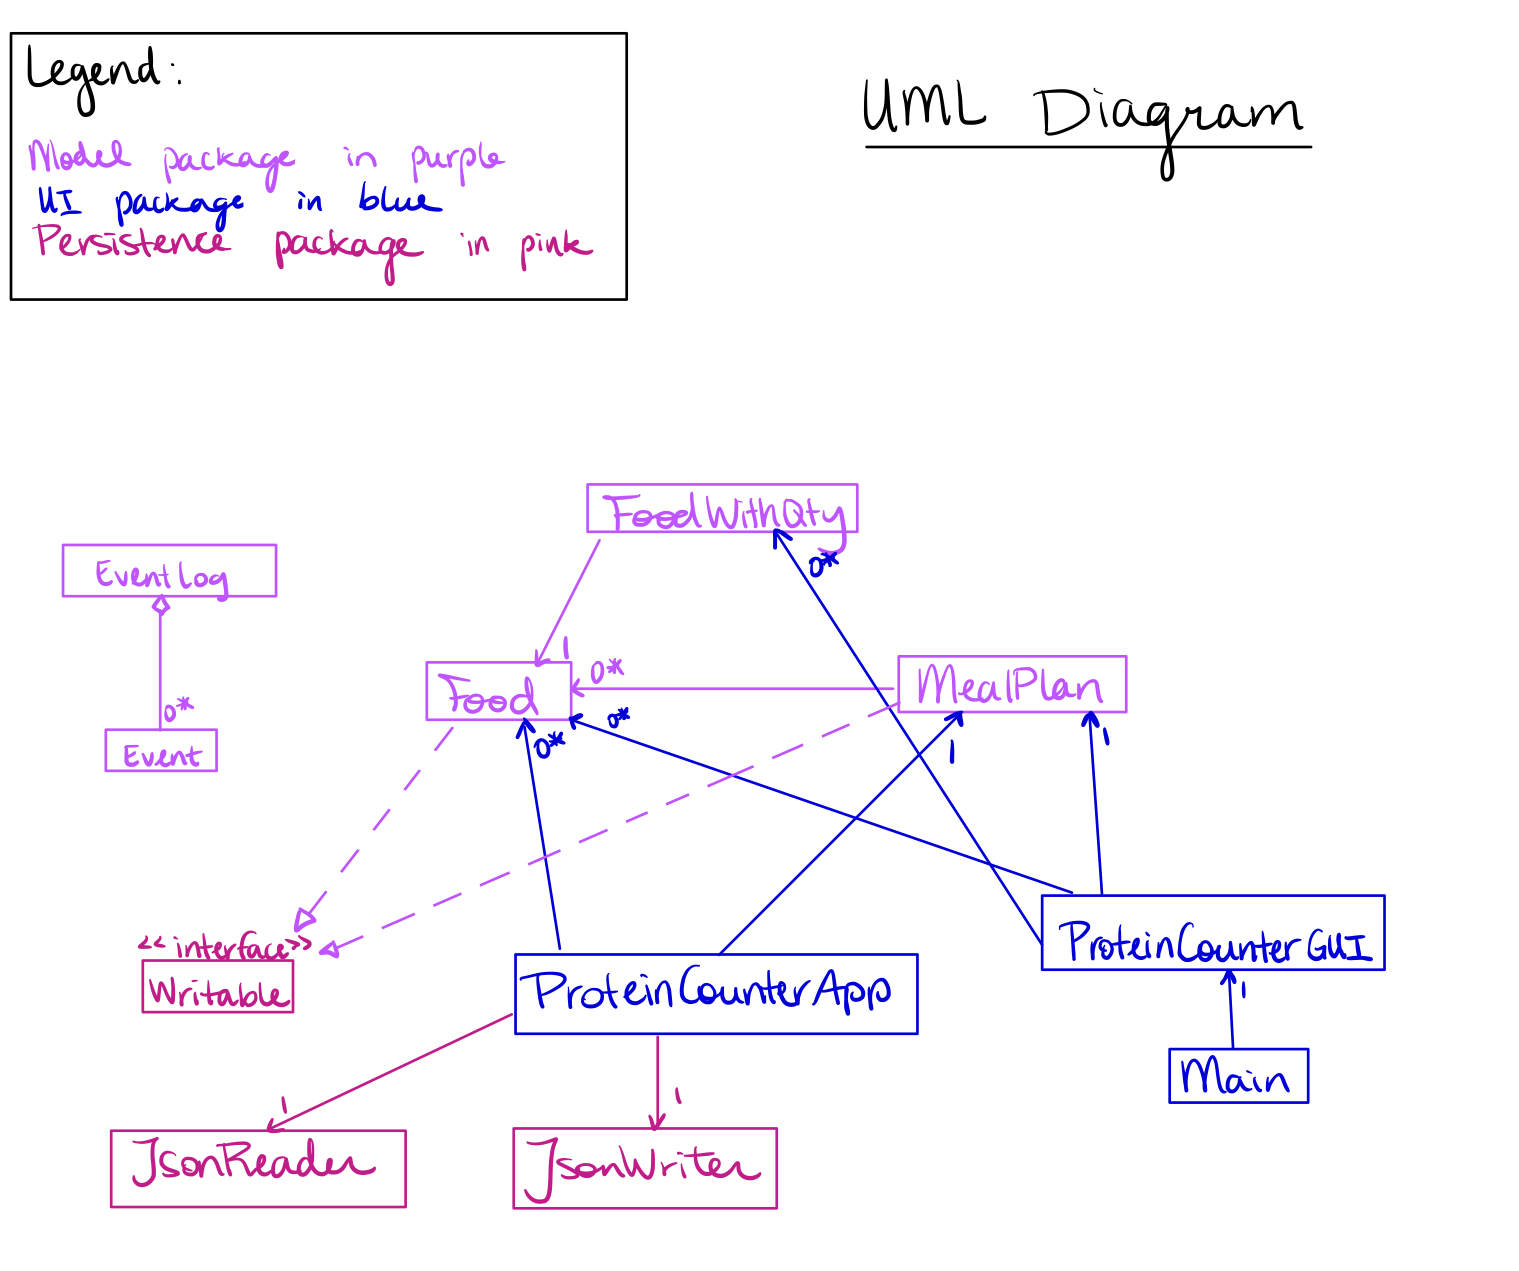 Legend:
Model package in purple
UI package in blue
Persistence package in pink
UML Diagram
FoodWithQty
0*
EventLog
0*
Event
1
Food
0*
MealPlan
0*
0*
1
1
<<interface>>
Writable
ProteinCounterApp
ProteinCounterGUI
1
Main
1
1
JsonReader
JsonWriter